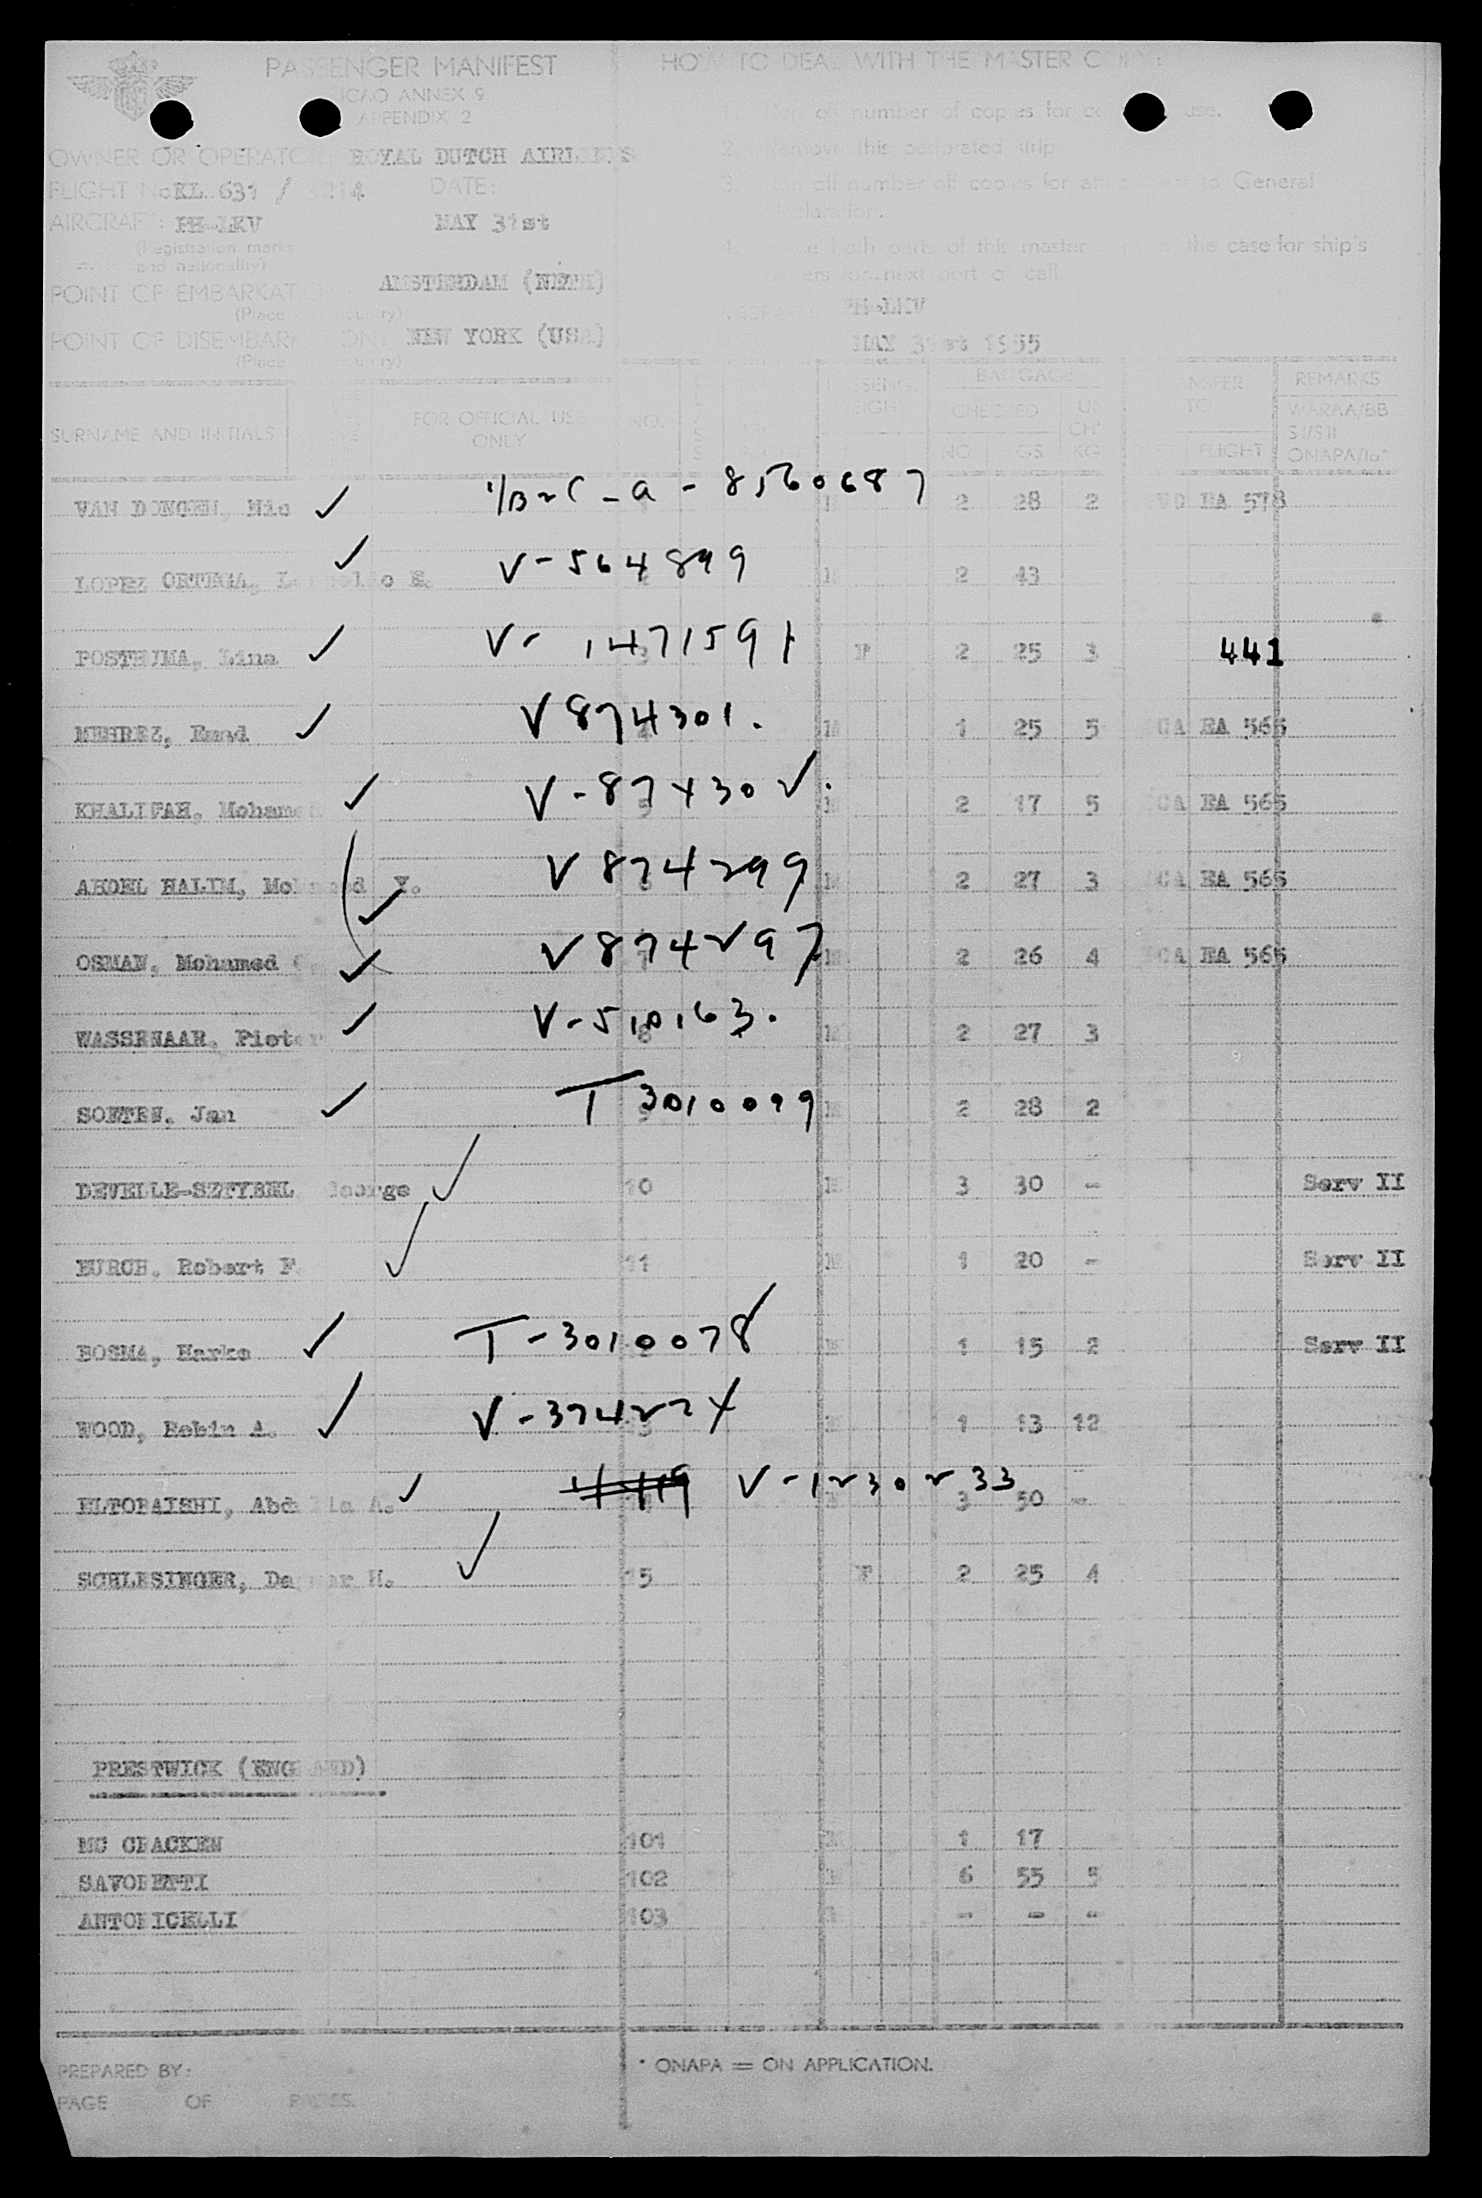 PASSENGER MANIFEST
ICAO ANNEX 9
APPENDIX 2
HOW TO DEAL WITH THE MASTER
number of copies for use.
2. Remove this perforated strip
3. off number of copies for to General
4. both parts of this master the case for ship's
next port of call
OWNER OR OPERATOR ROYAL DUTCH AIRLINES
FLIGHT No KL 631 / DATE:
AIRCRAFT: PH-LKV MAY 31st
(Registration marks
and nationality)
POINT OF EMBARKATION AMSTERDAM (NETH)
(Place
PH-LKV
POINT OF DISEMBARKATION NEW YORK (USA)
(Place
MAY 31st 1955
SURNAME AND INITIALS FOR OFFICIAL USE ONLY NO. BAGGAGE CHECKED NO KGS UN CH KG TRANSFER TO FLIGHT REMARKS WARAA/BB SI/SII ONAPA/lo*
VAN DONGEN, Nic ✓ 8560687 2 28 2 EA 578
LOPEZ ORTEGA, E. ✓ V-564899 2 43
POSTHUMA, Lina ✓ V- 1471591 F 2 25 3 441
MEHREZ, Emad ✓ V874301. 1 25 5 EA 565
KHALIFAH, Mohamed ✓ V-874302. 2 17 5 CA EA 565
ABDEL HALIM, Mohamed Y. ✓ V874299 2 27 3 CA EA 565
OSMAN, Mohamed ✓ V874297 2 26 4 CA EA 565
WASSENAAR, Pieter ✓ V-510163. 2 27 3
SOETEN, Jan ✓ T3010099 2 28 2
DEVELLE-SZTYBEL George ✓ 10 3 30 - Serv II
BURCH, Robert F. ✓ 11 1 20 - Serv II
BOSMA, Harke ✓ T-3010078 1 15 2 Serv II
WOOD, Robin A. ✓ V-374274 1 13 12
ELTOBAISHI, Abdulla A. ✓ V-1230233 3 50 -
SCHLESINGER, Dagmar H. ✓ 15 F 2 25 4
PRESTWICK (ENGLAND)
MC CRACKEN 101 1 17
SAVORETTI 102 6 55 5
ANTONICELLI 103 - - -
PREPARED BY:
* ONAPA = ON APPLICATION.
PAGE OF PAGES.